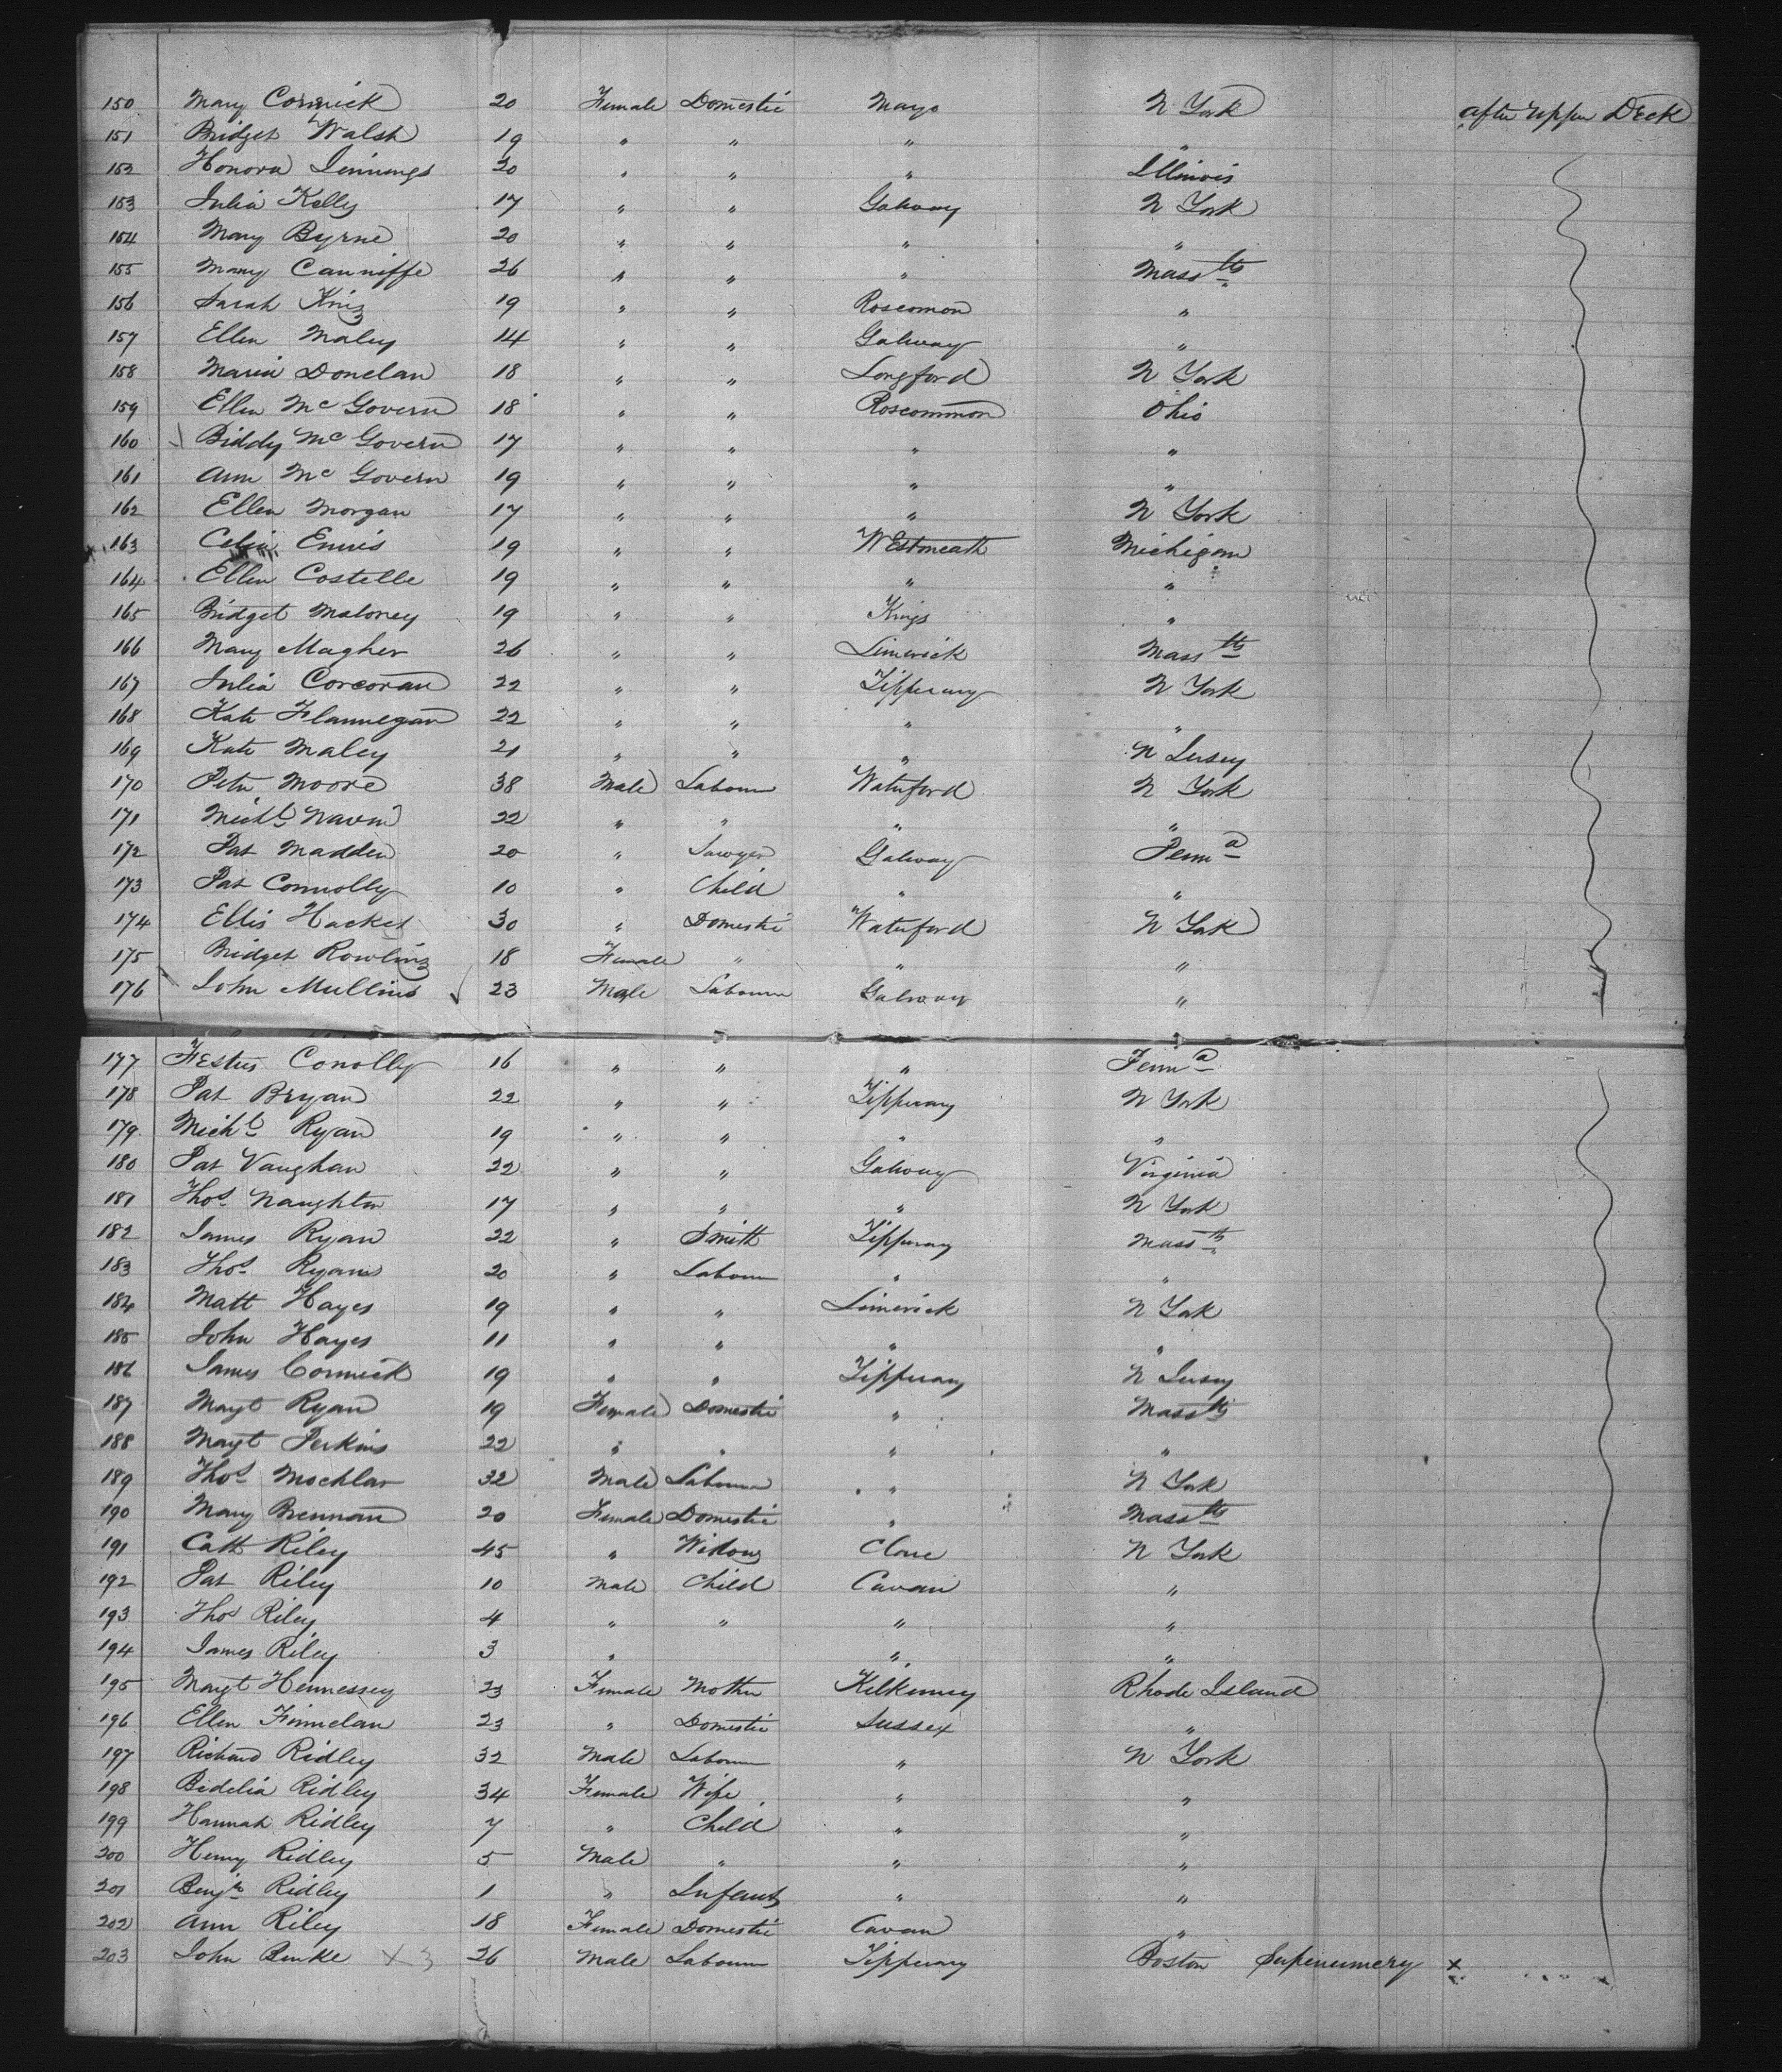 150 Mary Cormick 20 Female Domestic Mayo N York after upper Deck
151 Bridget Walsh 19 " " " "
152 Honora Jennings 20 " " " Illinois
153 Julia Kelly 17 " " Galway N York
154 Mary Byrne 20 " " " "
155 Mary Cauniffe 26 " " " Massts
156 Sarah King 19 " " Roscomon "
157 Ellen Maley 14 " " Galway "
158 Maria Donelan 18 " " Longford N York
159 Ellen McGovern 18 " " Roscommon Ohio
160 Biddy McGovern 17 " " " "
161 Ann McGovern 19 " " " "
162 Ellen Morgan 17 " " " N York
163 Celia Ennis 19 " " Westmeath Michigan
164 Ellen Costelle 19 " " " "
165 Bridget Maloney 19 " " Kings "
166 Mary Magher 26 " " Limerick Massts
167 Julia Corcoran 22 " " Tipperary N York
168 Kate Flannegan 22 " " " "
169 Kate Maley 21 " " " N Jersey
170 Peter Moore 38 Male Labourer Waterford N York
171 Michl 22 " " " "
172 Pat Madden 20 " Sawyer Galway Penna
173 Pat Connolly 10 " Child " "
174 Ellis Hacket 30 " Domestic Waterford N York
175 Bridget Rowling 18 Female " " "
176 John Mullins 23 Male Labourer Galway "
177 Festus Conolly 16 " " " Penna
178 Pat Bryan 22 " " Tipperary N York
179 Michl Ryan 19 " " " "
180 Pat Vaughan 22 " " Galway Virginia
181 Thos Naughton 17 " " " N York
182 James Ryan 22 " Smith Tipperary Massts
183 Thos Ryan 20 " Labourer " "
184 Matt Hayes 19 " " Limerick N York
185 John Hayes 11 " " " "
186 James Cormick 19 " " Tipperary N Jersey
187 Magt Ryan 19 Female Domestic " Massts
188 Magt Perkins 22 " " " "
189 Thos Mochlar 32 Male Labourer " N York
190 Mary Brennan 20 Female Domestic " Massts
191 Cath Riley 45 " Widow Clare N York
192 Pat Riley 10 Male Child Cavan "
193 Thos Riley 4 " " " "
194 James Riley 3 " " "
195 Magt Hennessey 23 Female Mother Kilkenny Rhode Island
196 Ellen Finnelan 23 " Domestic Sussex "
197 Richard Ridley 32 Male Labourer " N York
198 Bidelia Ridley 34 Female Wife " "
199 Hannah Ridley 7 " Child " "
200 Henry Ridley 5 Male " " "
201 Benjn Ridley 1 " Infant " "
202 Ann Riley 18 Female Domestic Cavan "
203 John Burke X 3 26 Male Labourer Tipperary Boston Supernumery X